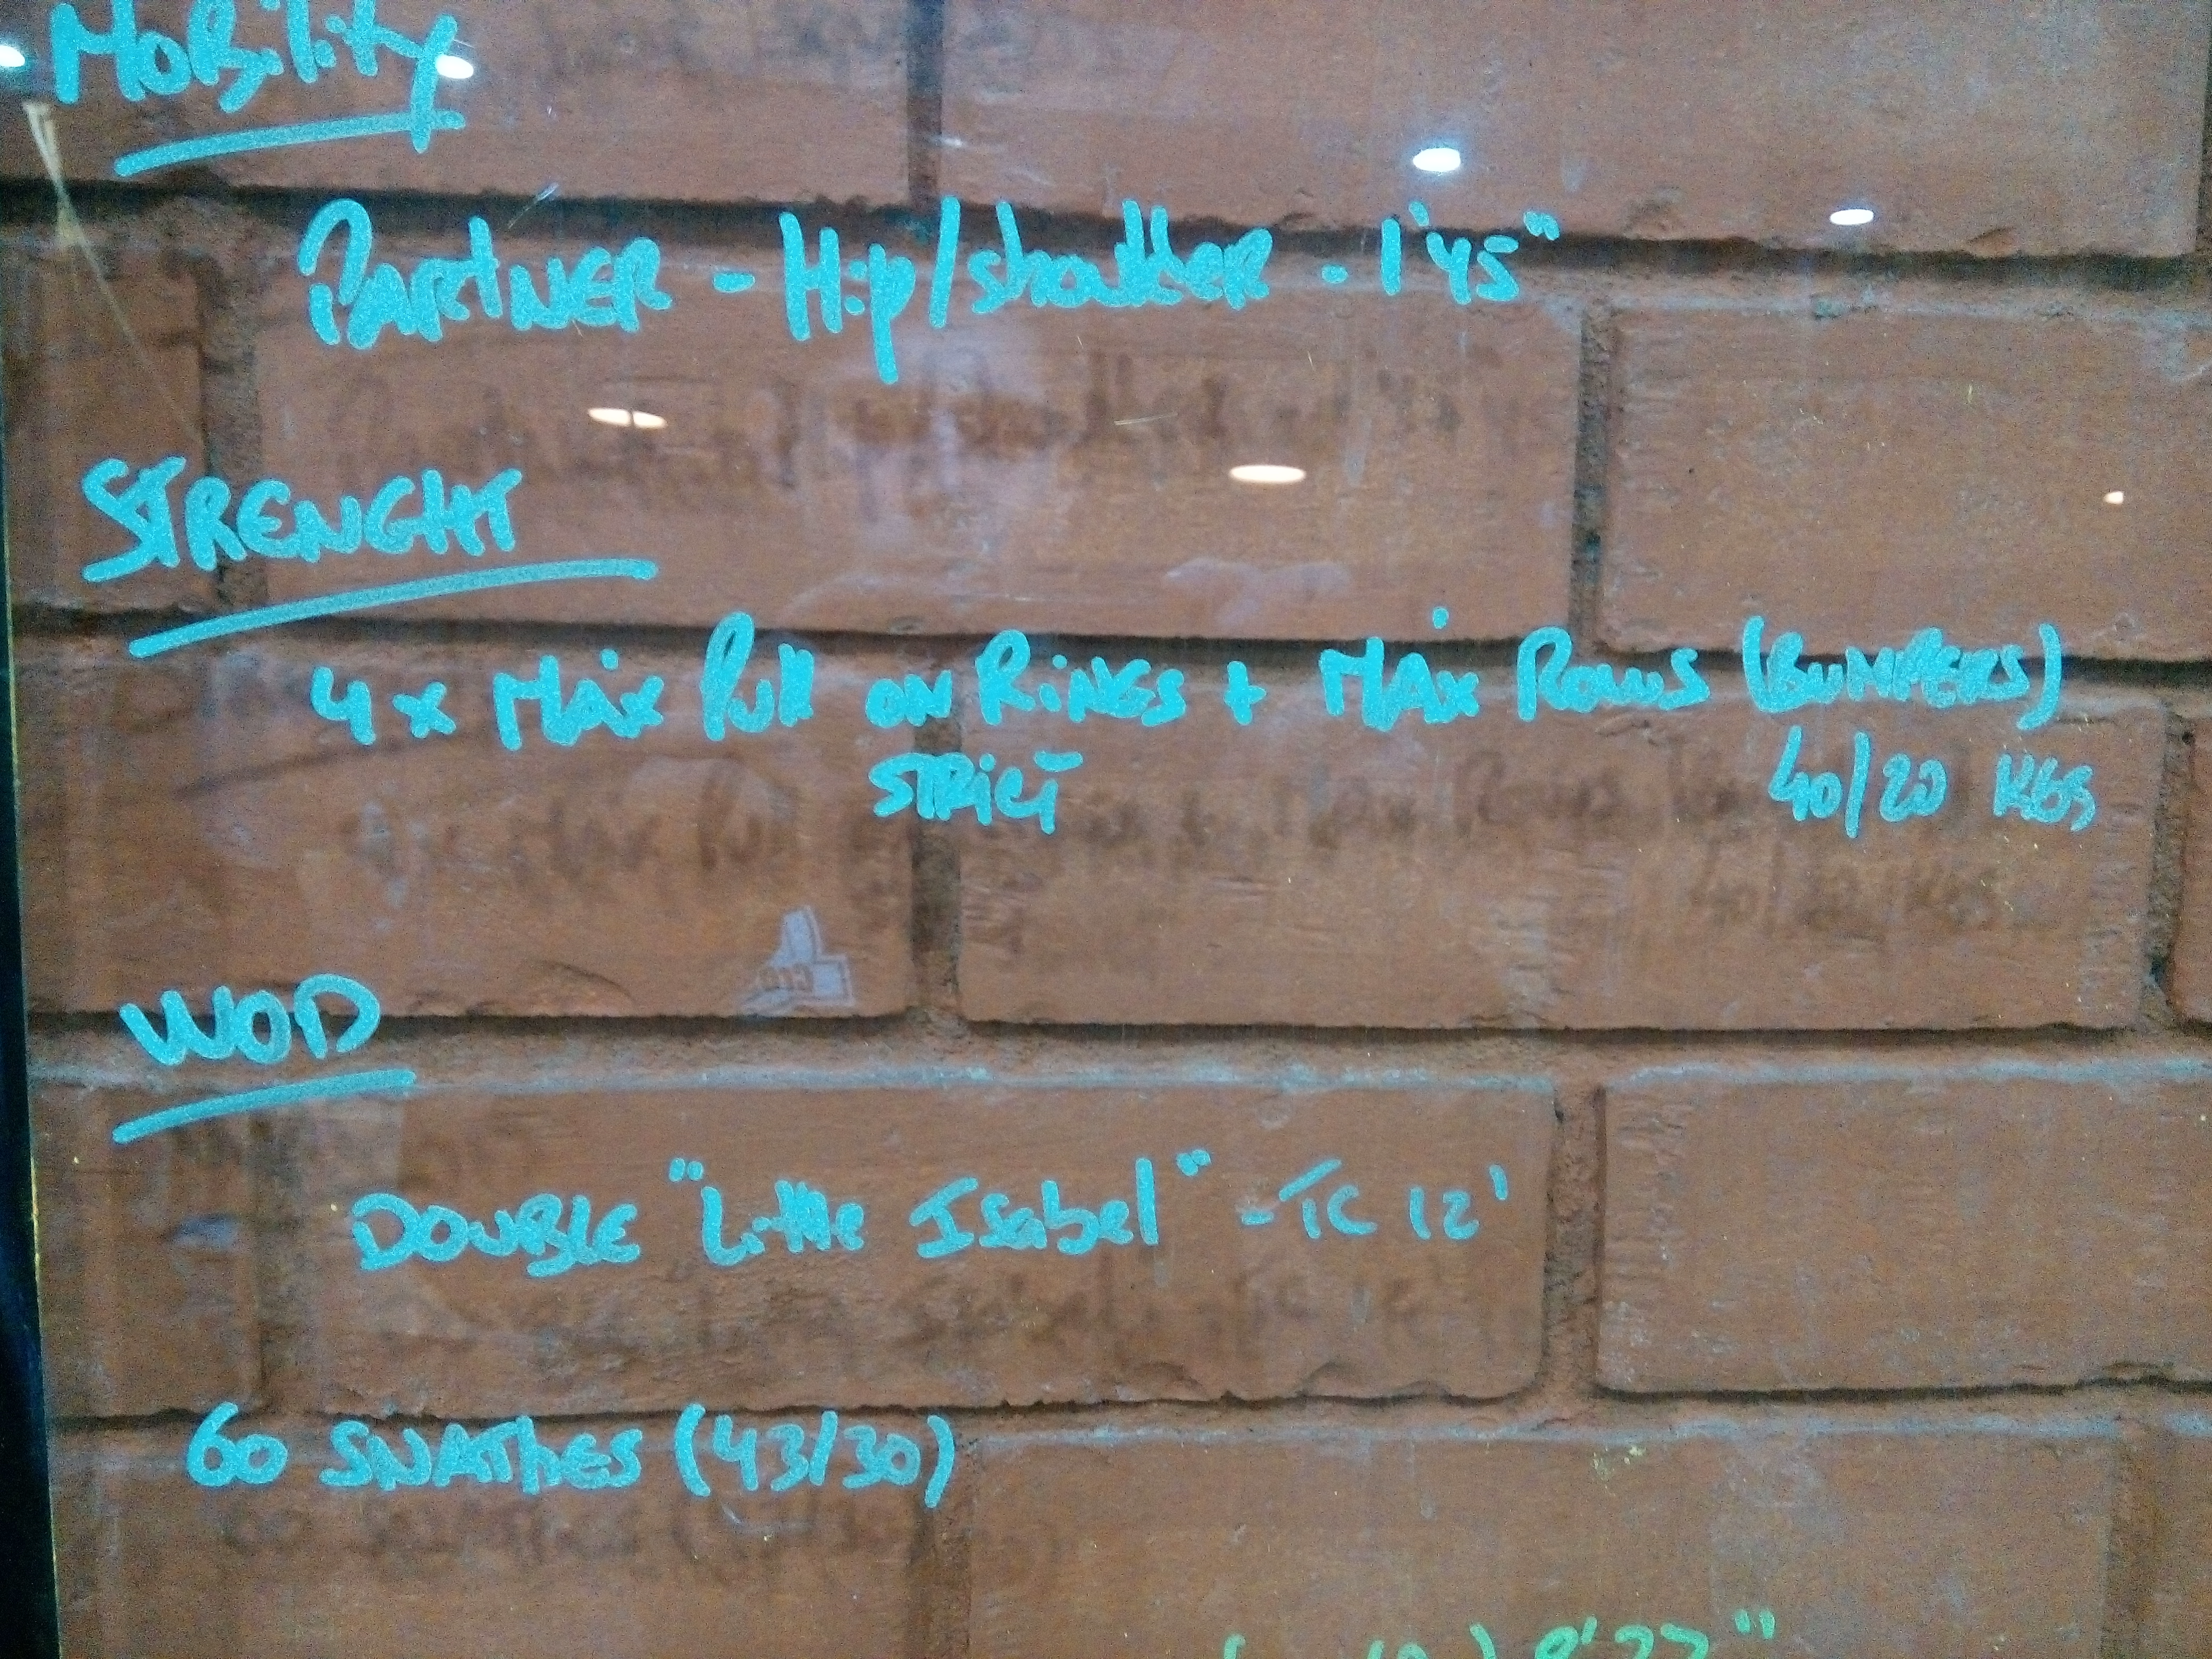 Mobility
PARTNER - Hip/shoulder - 1'45"
STRENGHT
4 x MAx Pull ON RiNGs + MAx Rows (BUMPERS)
STRICT 40/20 KGS
WOD
DOUBLE "Little Isabel" - TC 12'
60 SNATHES (43/30)